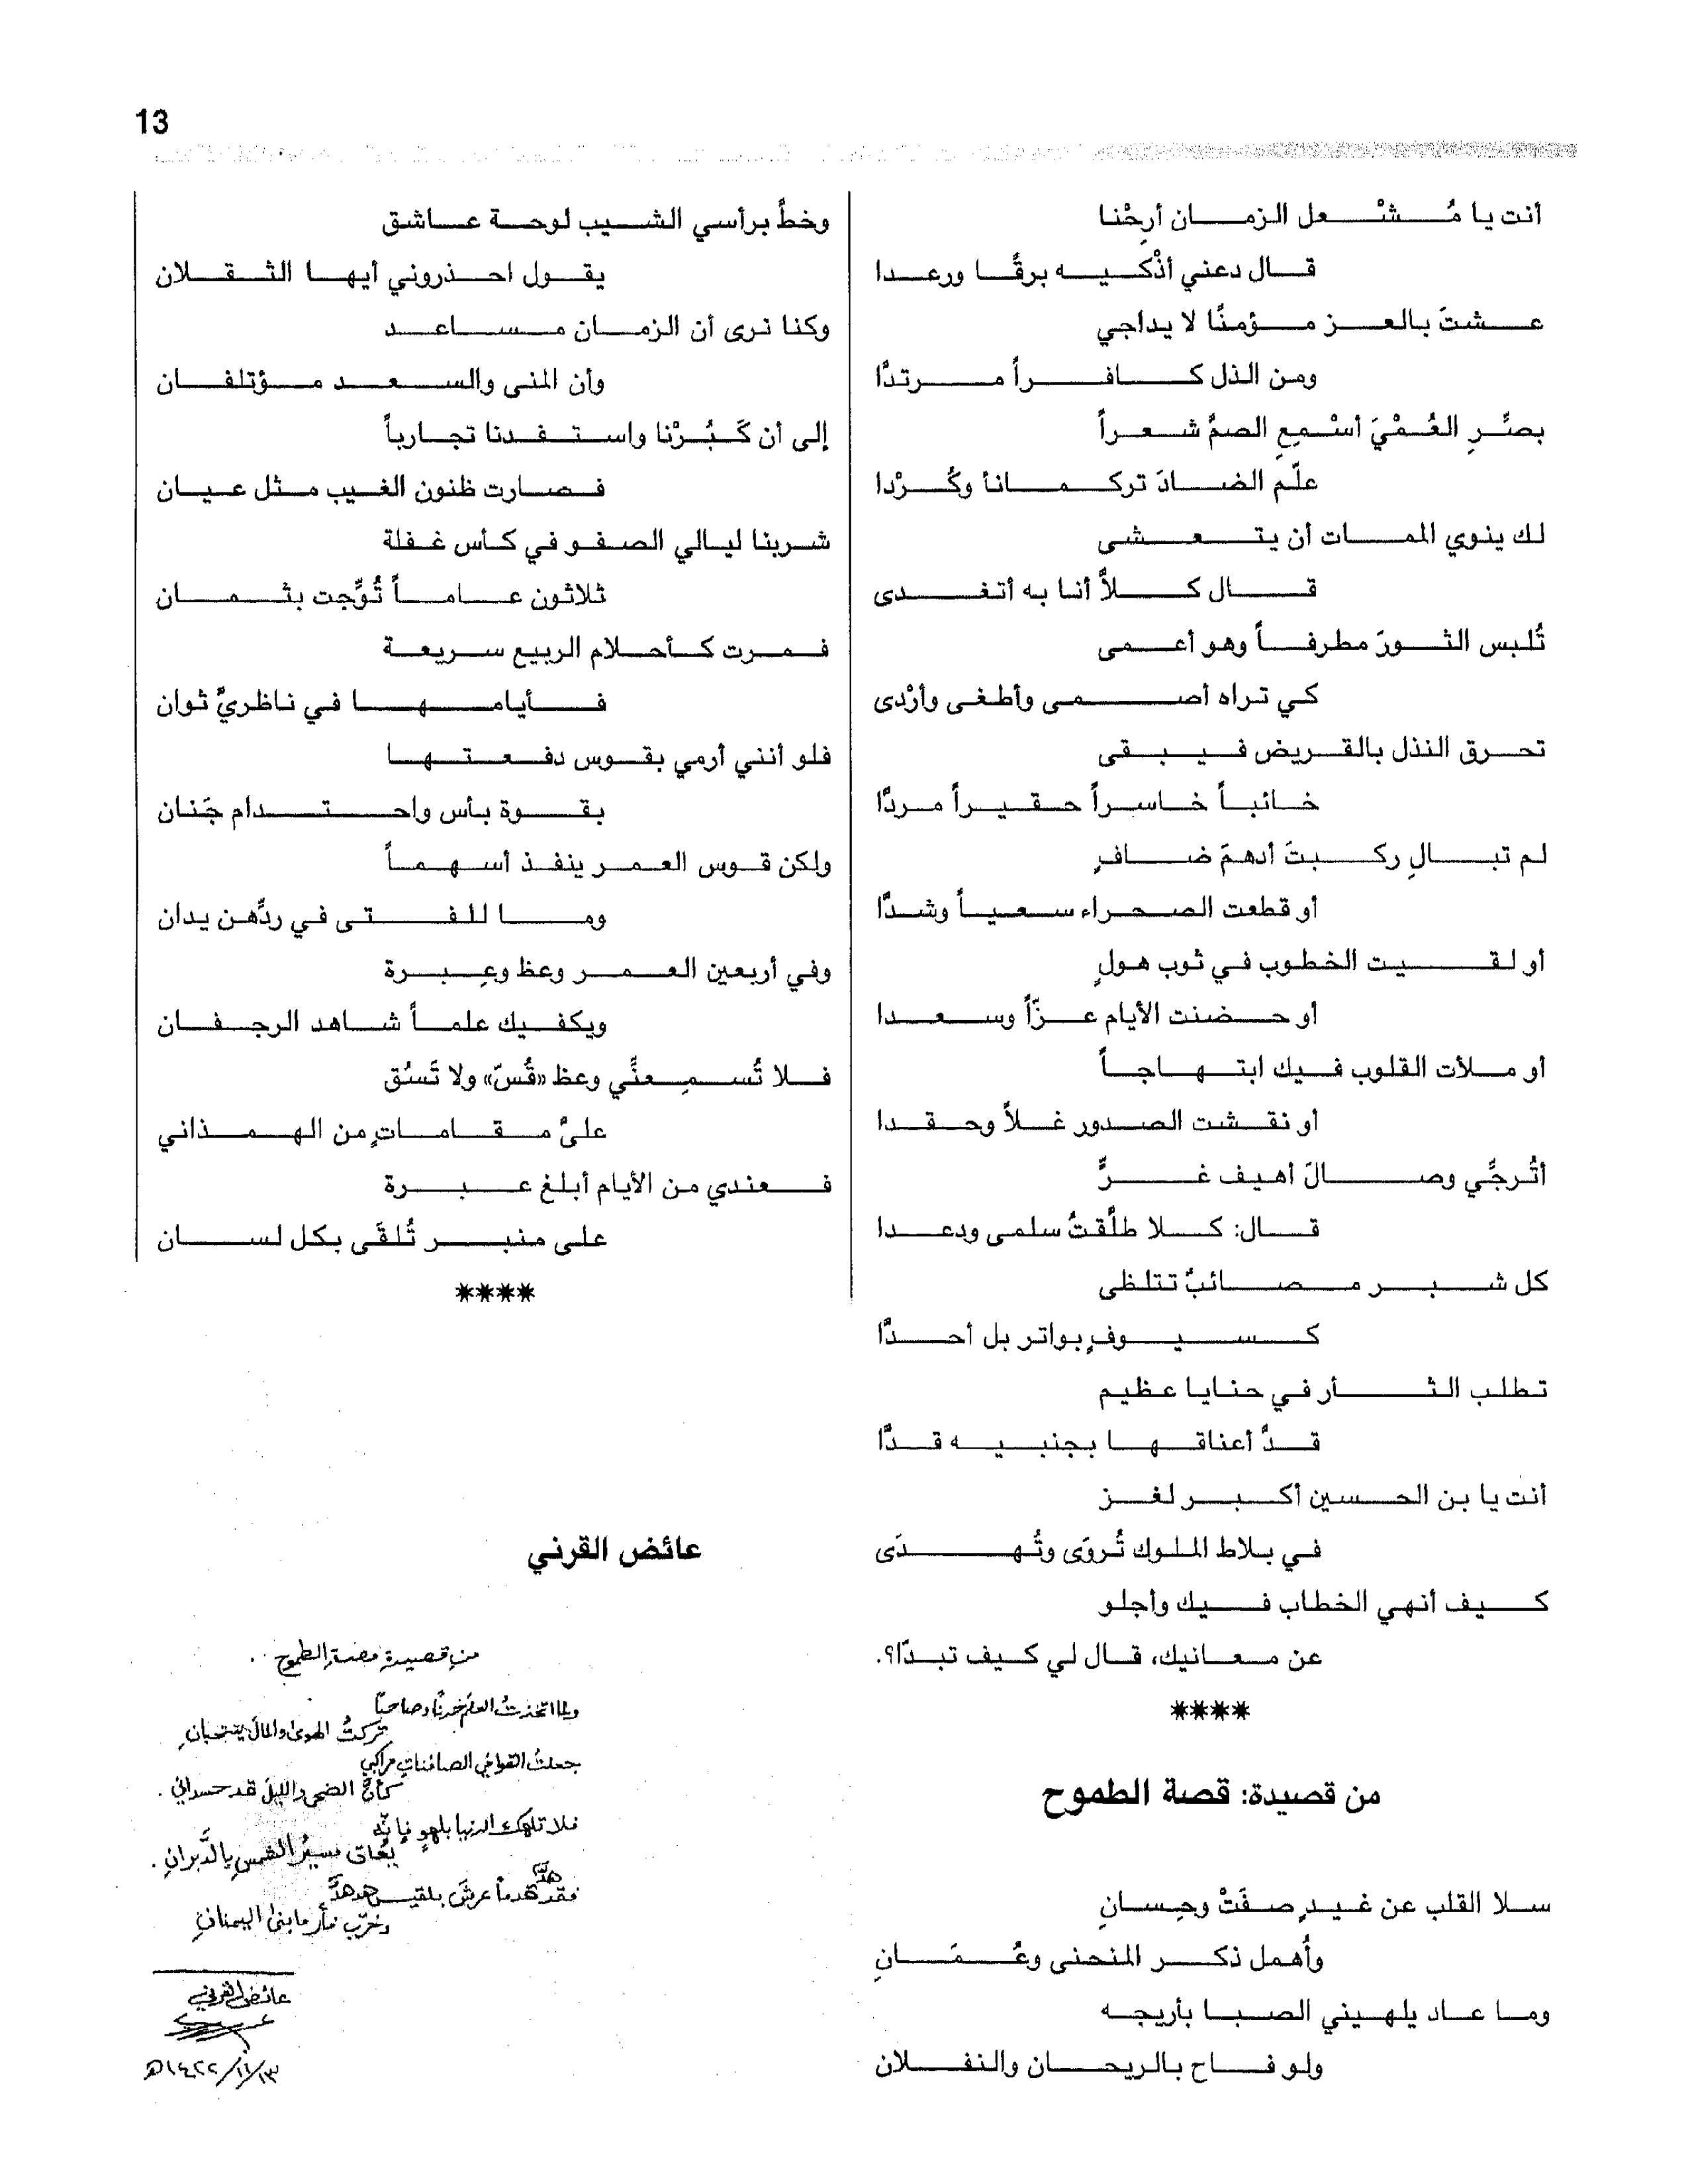 13
أنت يا مُشْعل الزمان أرِحْنا
قال دعني أذْكيه برقًا ورعدا
عشتَ بالعز مؤمنًا لا يداجي
ومن الذل كافراً مرتدّا
بصِّرِ العُمْيَ أسْمِعِ الصمَّ شعراً
علّم الضادَ تركماناً وكُرْدا
لك ينوي الممات أن يتعشى
قال كلاَّ أنا به أتغدى
تُلبس الثورَ مطرفاً وهو أعمى
كي تراه أصمى وأطغى وأرْدى
تحرق النذل بالقريض فيبقى
خائباً خاسراً حقيراً مردّا
لم تبالِ ركبتَ أدهمَ ضافرٍ
أو قطعت الصحراء سعياً وشدّا
أو لقيت الخطوب في ثوب هولٍ
أو حضنت الأيام عزّاً وسعدا
أو ملأت القلوب فيك ابتهاجاً
أو نقشت الصدور غلاً وحقدا
أتُرجِّي وصالَ أهيف غرٍّ
قال: كلا طلَّقتُ سلمى ودعدا
كل شبر مصائبٌ تتلظى
كسيوفٍ بواتر بل أحدّا
تطلب الثأر في حنايا عظيم
قدَّ أعناقها بجنبيه قدّا
أنت يا بن الحسين أكبر لغز
في بلاط الملوك تُروَى وتُهدَى
كيف أنهي الخطاب فيك وأجلو
عن معانيك، قال لي كيف تبدّا؟.
****
من قصيدة: قصة الطموح
سلا القلب عن غيدٍ صفَتْ وحِسانِ
وأُهمل ذكر المنحنى وعُمَانِ
وما عاد يلهيني الصبا بأريجه
ولو فاح بالريحان والنفلان
وخطَّ برأسي الشيب لوحة عاشق
يقول احذروني أيها الثقلان
وكنا نرى أن الزمان مساعد
وأن المنى والسعد مؤتلفان
إلى أن كَبُرْنا واستفدنا تجارباً
فصارت ظنون الغيب مثل عيان
شربنا ليالي الصفو في كأس غفلة
ثلاثون عاماً تُوِّجت بثمان
فمرت كأحلام الربيع سريعة
فأيامها في ناظريَّ ثوان
فلو أنني أرمي بقوس دفعتها
بقوة بأس واحتدام جَنان
ولكن قوس العمر ينفذ أسهماً
وما للفتى في ردِّهن يدان
وفي أربعين العمر وعظ وعِبرة
ويكفيك علماً شاهد الرجفان
فلا تُسمِعنِّي وعظ «قُسّ» ولا تَسُق
عليَّ مقاماتٍ من الهمذاني
فعندي من الأيام أبلغ عبرة
على منبر تُلقَى بكل لسان
****
عائض القرني
من قصيدة قصة الطموح .
ولما اتخذتُ العلمَ خدنًا وصاحبًا
تركتُ الهوى والمالَ ينتحبانِ
جعلتُ القوافي الصافناتِ مراكبي
كأنَّ الضحى والليلَ قد حسداني .
فلا تلهك الدنيا بلهوٍ فإنّه
يُعاق مسيرُ الشمسِ بالدَّبرانِ .
فقد هدَّ قدماً عرشَ بلقيس هدهدٌ
وخرّب فأر ما بنى اليمنانِ
عائض القرني
١٤٢٢/١١/١٣هـ